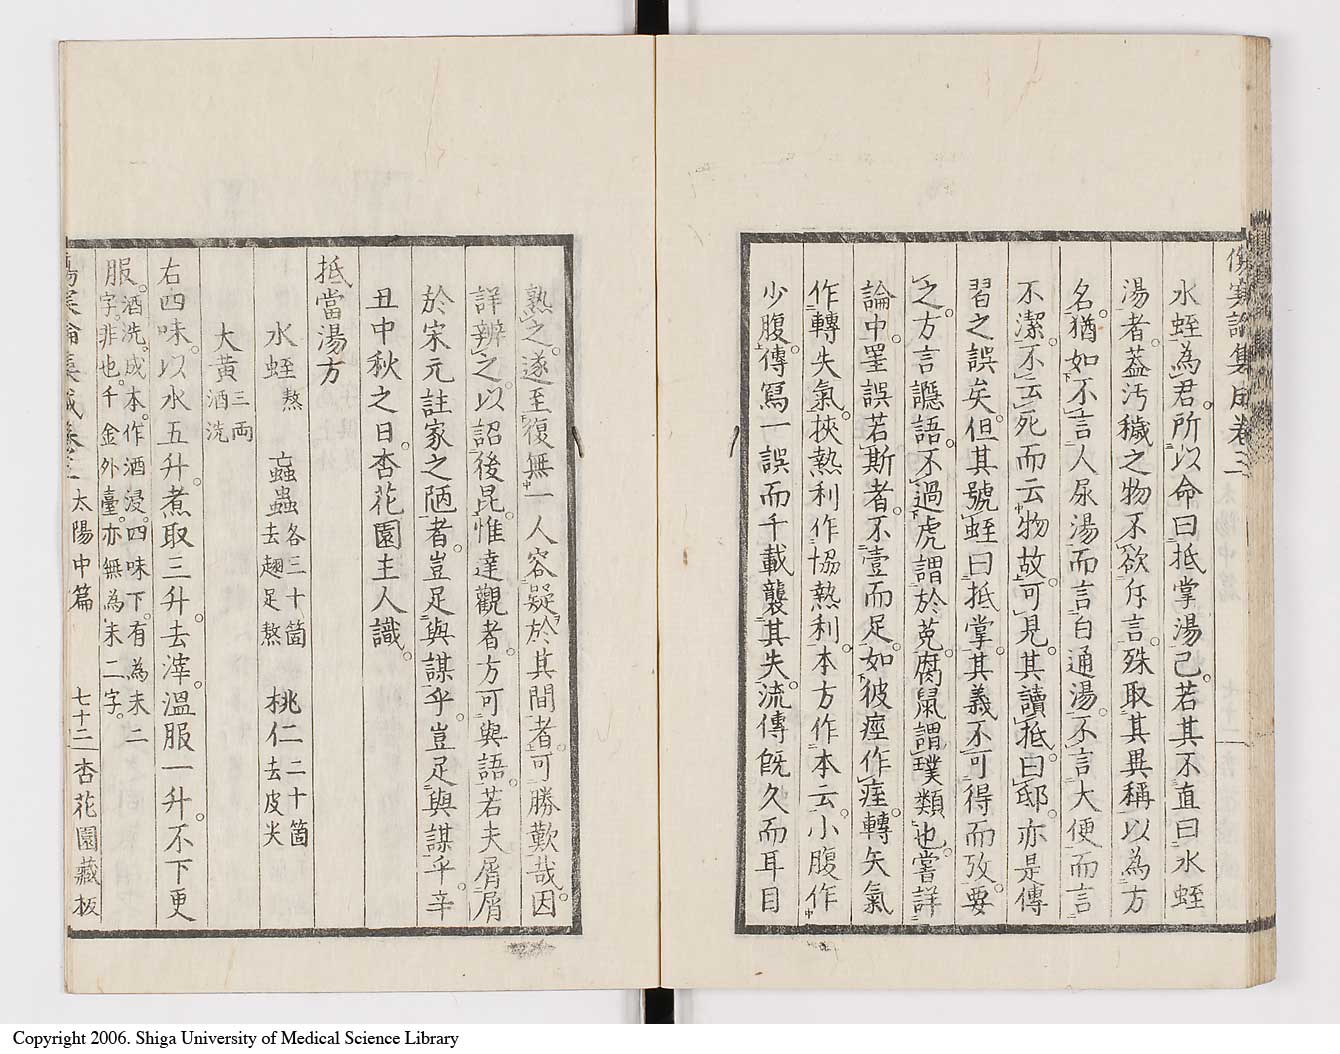 傷寒論集成卷三
水蛭為君。所以命曰抵掌湯已。若其不直曰水蛭
湯者。蓋汚穢之物不欲斥言。殊取其異稱以為方
名。猶如不言人尿湯而言白通湯。不言大便而言
不潔。不云死而云物故。可見其讀抵曰邸。亦是傳
習之誤矣。但其號蛭曰抵掌。其義不可得而攷。要
之方言讔語。不過虎謂於菟腐鼠謂璞類也。嘗詳
論中。罣誤若斯者。不壹而足。如彼痙作痓。轉矢氣
作轉失氣。挾熱利作協熱利。本方作本云。小腹作
少腹。傳寫一誤而千載襲其失。流傳既久而耳目
熟之。遂至復無一人容疑於其間者。可勝歎哉。因
詳辨之。以詔後昆。惟達觀者。方可與語。若夫屑屑
於宋元註家之陋者。豈足與謀乎。豈足與謀乎。辛
丑中秋之日。杏花園主人識。
抵當湯方
水蛭熬 蝱蟲各三十箇去翅足熬 桃仁二十箇去皮尖
大黃三兩酒洗
右四味。以水五升。煮取三升。去滓。溫服一升。不下更
服。酒洗。成本。作酒浸。四味下。有為末二
字。非也。千金外臺。亦無為末二字。
傷寒論集成卷三 太陽中篇 七十二 杏花園藏板
Copyright 2006. Shiga University of Medical Science Library